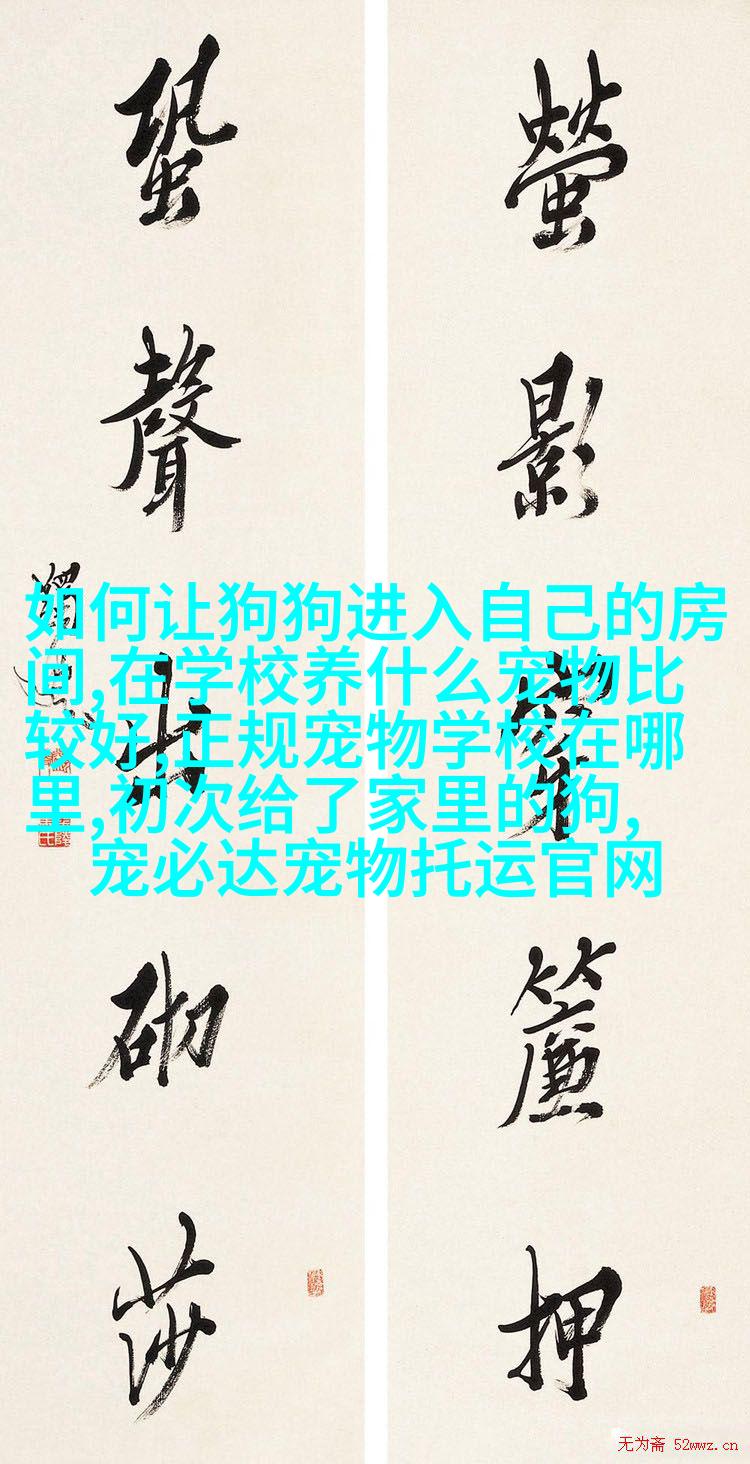 螢影簾押
蛩聲出砌莎
如何让狗狗进入自己的房
间,在学校养什么宠物比
较好,正规宠物学校在哪
里,初次给了家里的狗,
宠必达宠物托运官网
无为斋 52wwz.cn